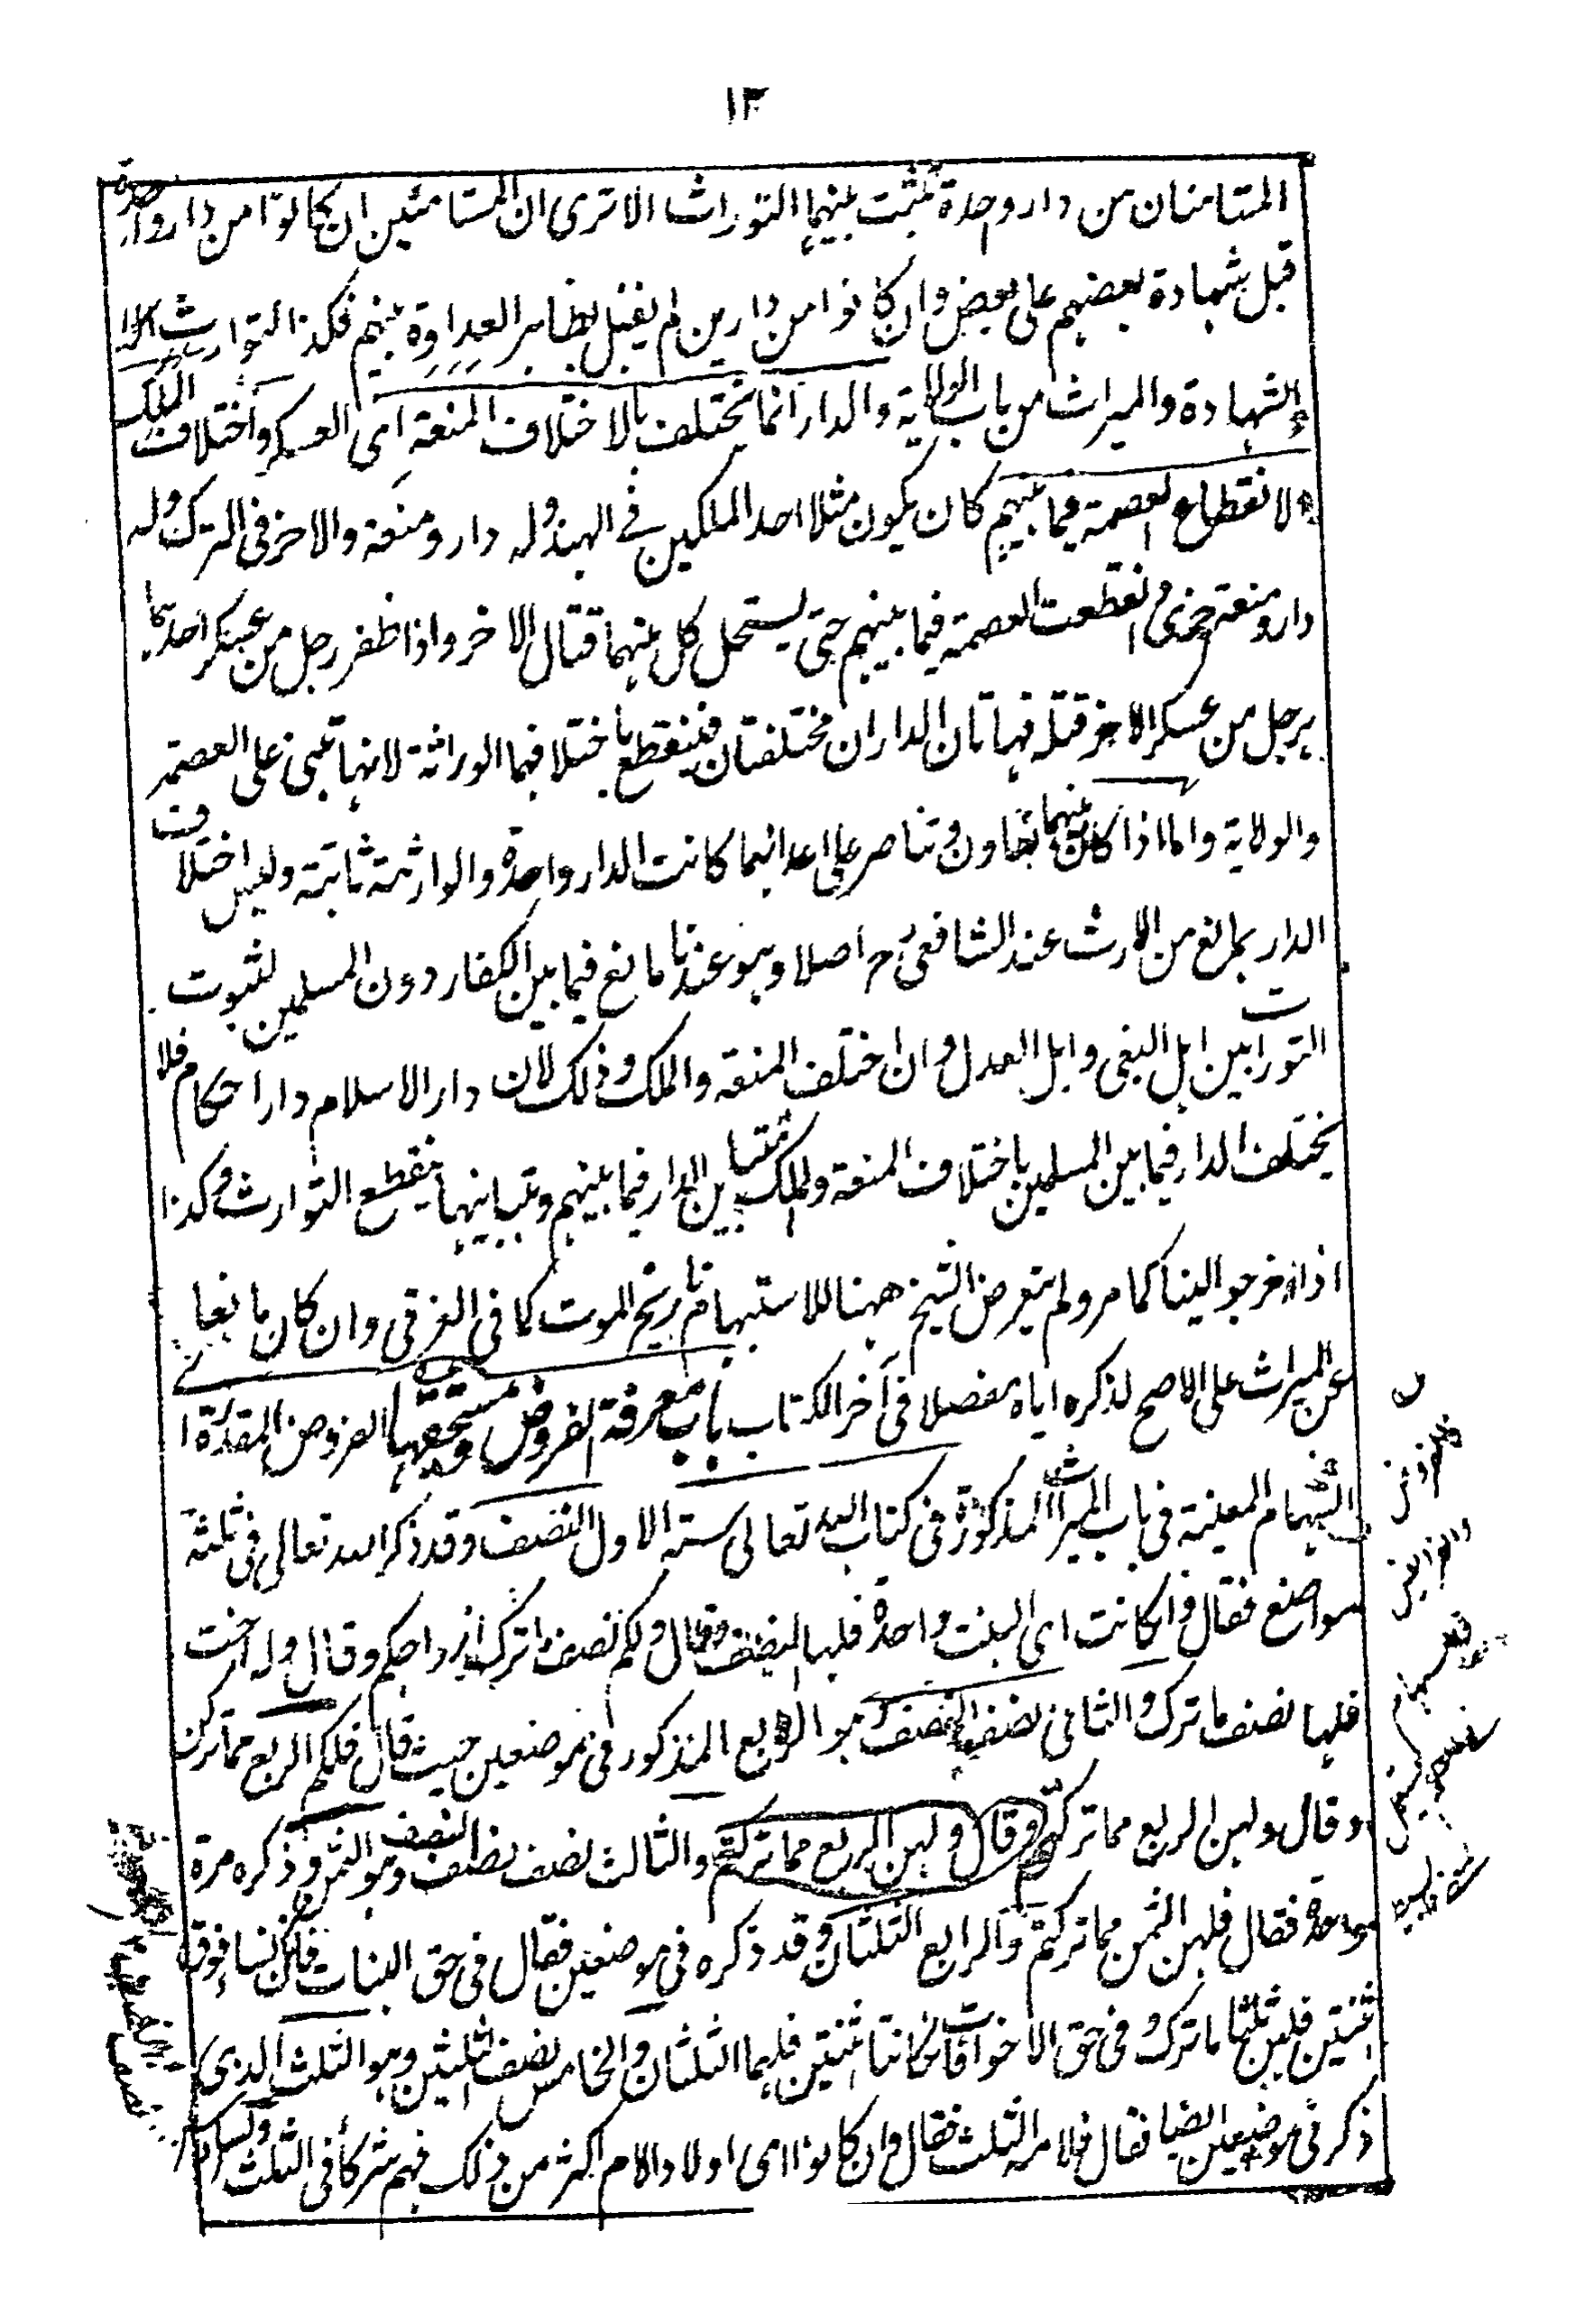 ١٣
المستامنان من دار واحدة يثبت بينهما التوارث الا ترى ان المستامنين ان كانوا من دار واحدة
قبل شهادة بعضهم على بعض وان كانوا من دارين لم يقبل لظاهر العداوة بينهم فكذا التوارث لان
الشهادة والميراث من باب الولاية والدار انما تختلف بالاختلاف المنعة اى العسكر واختلاف الملك
لانقطاع العصمة فيما بينهم كان يكون مثلا احد الملكين فى الهند وله دار ومنعة والاخر فى الترك وله
دار ومنعة اخرى وانقطعت العصمة فيما بينهم حتى يستحل كل منهما قتال الاخر واذا ظفر رجل من عسكر احدهما
برجل من عسكر الاخر قتله فهاتان الداران مختلفتان فينقطع باختلافهما الوراثة لانها تبنى على العصمة
والولاية واما اذا كان بينهما تعاون وتناصر على اعدائهما كانت الدار واحدة والوارثة ثابتة وليس اختلاف
الدار بمانع من الارث عند الشافعى رح اصلا وهو عندنا مانع فيما بين الكفار دون المسلمين لثبوت
التورات بين اهل البغى واهل العدل وان اختلف المنعة والملك وذلك لان دار الاسلام دار احكام فلا
يختلف الدار فيما بين المسلمين باختلاف المنعة والملك فتباين الدار فيما بينهم وبتباينها ينقطع التوارث وكذا
اذا خرجوا الينا كما مر ولم يتعرض الشيخ ههنا للاستبهام تاريخ الموت كما فى الغرقى وان كان مانعا
عن الميراث على الاصح لذكره اياه مفصلا فى آخر الكتاب باب معرفة الفروض ومستحقيها الفروض المقدرة ا
السهام المعينة فى باب الميراث المذكورة فى كتاب الله تعالى ستة الاول النصف وقد ذكر الله تعالى فى ثلثة
مواضع فقال وان كانت اى البنت واحدة فلها النصف وقال ولكم نصف ما ترك ازواجكم وقال وله اخت
فلها نصف ما ترك والثانى نصف النصف وهو الربع المذكور فى موضعين حيث قال فلكم الربع مما تركن
وقال ولهن الربع مما تركتم وقال ولهن الربع مما تركتم والثالث نصف نصف النصف وهو الثمن وذكره مرة
واحدة فقال فلهن الثمن مما تركتم والرابع الثلثان وقد ذكره فى موضعين فقال فى حق البنات فان كن نساء فوق
اثنتين فلهن ثلثا ما ترك وفى حق الاخوات فان كانتا اثنتين فلهما الثلثان والخامس نصف الثلثين وهو الثلث الذى
ذكر فى موضعين ايضا فقال فلامه الثلث فقال وان كانوا اى اولاد الام اكثر من ذلك فهم شركاء فى الثلث